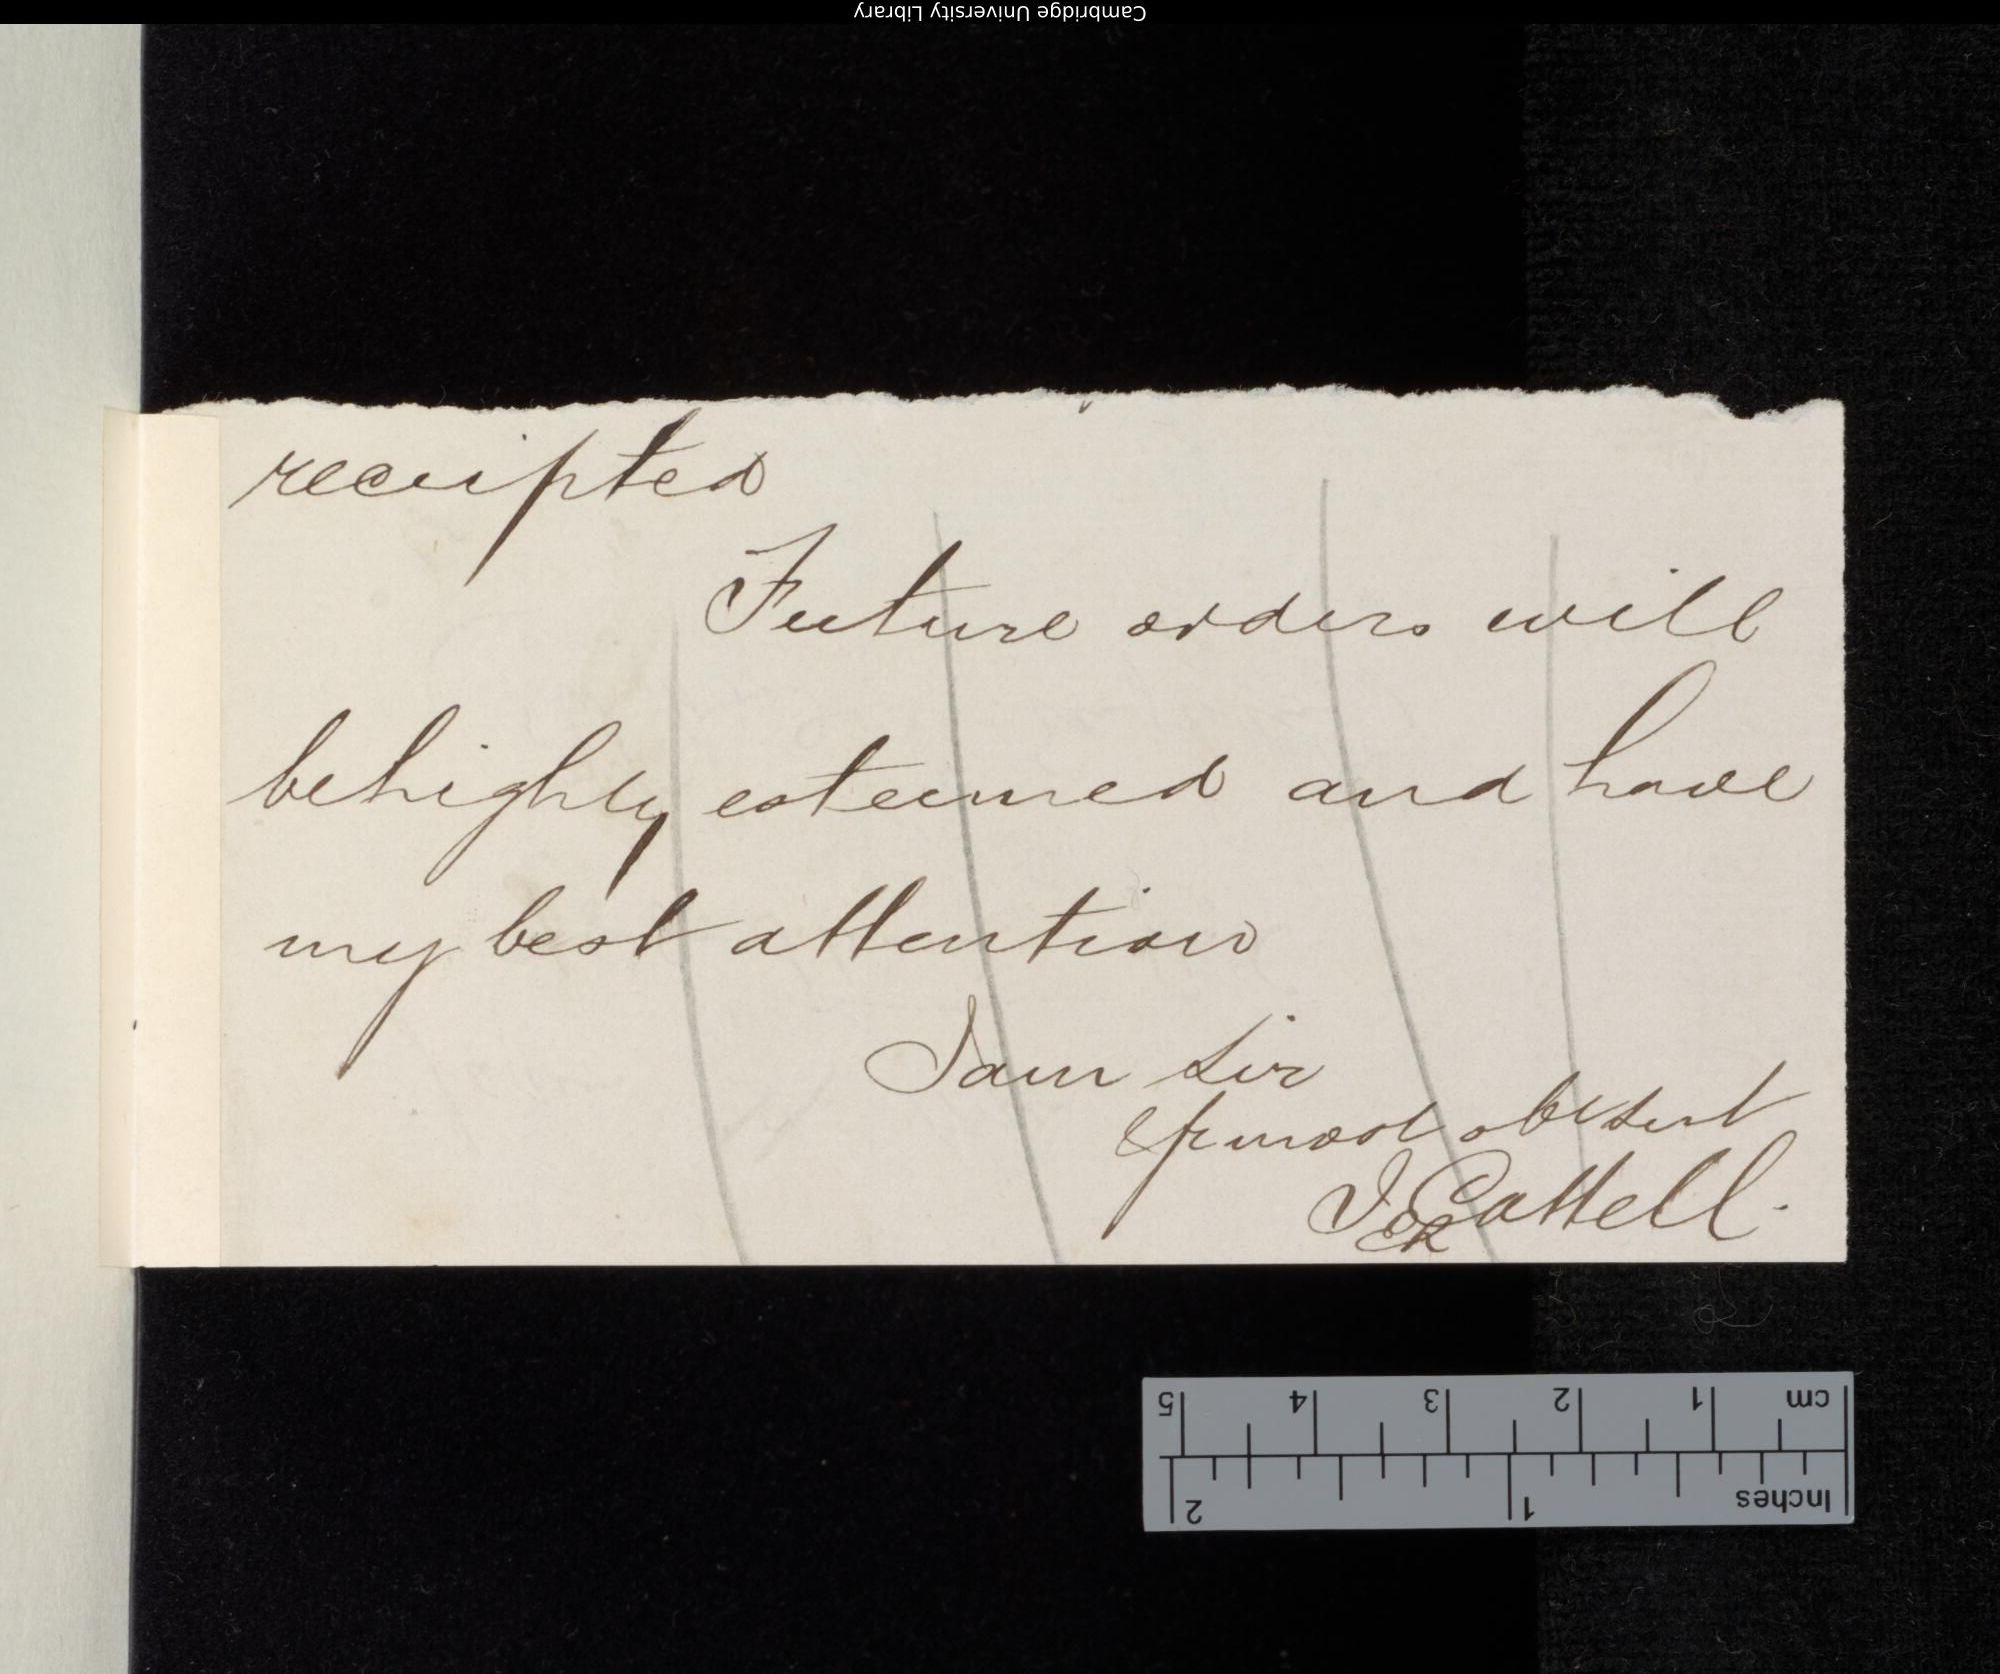 Cambridge University Library
receipted
Future orders will
be highly esteemed and have
my best attention
I am Sir
yr most obt Servt
J Cattell.
5 4 3 2 1 cm
2 1 Inches